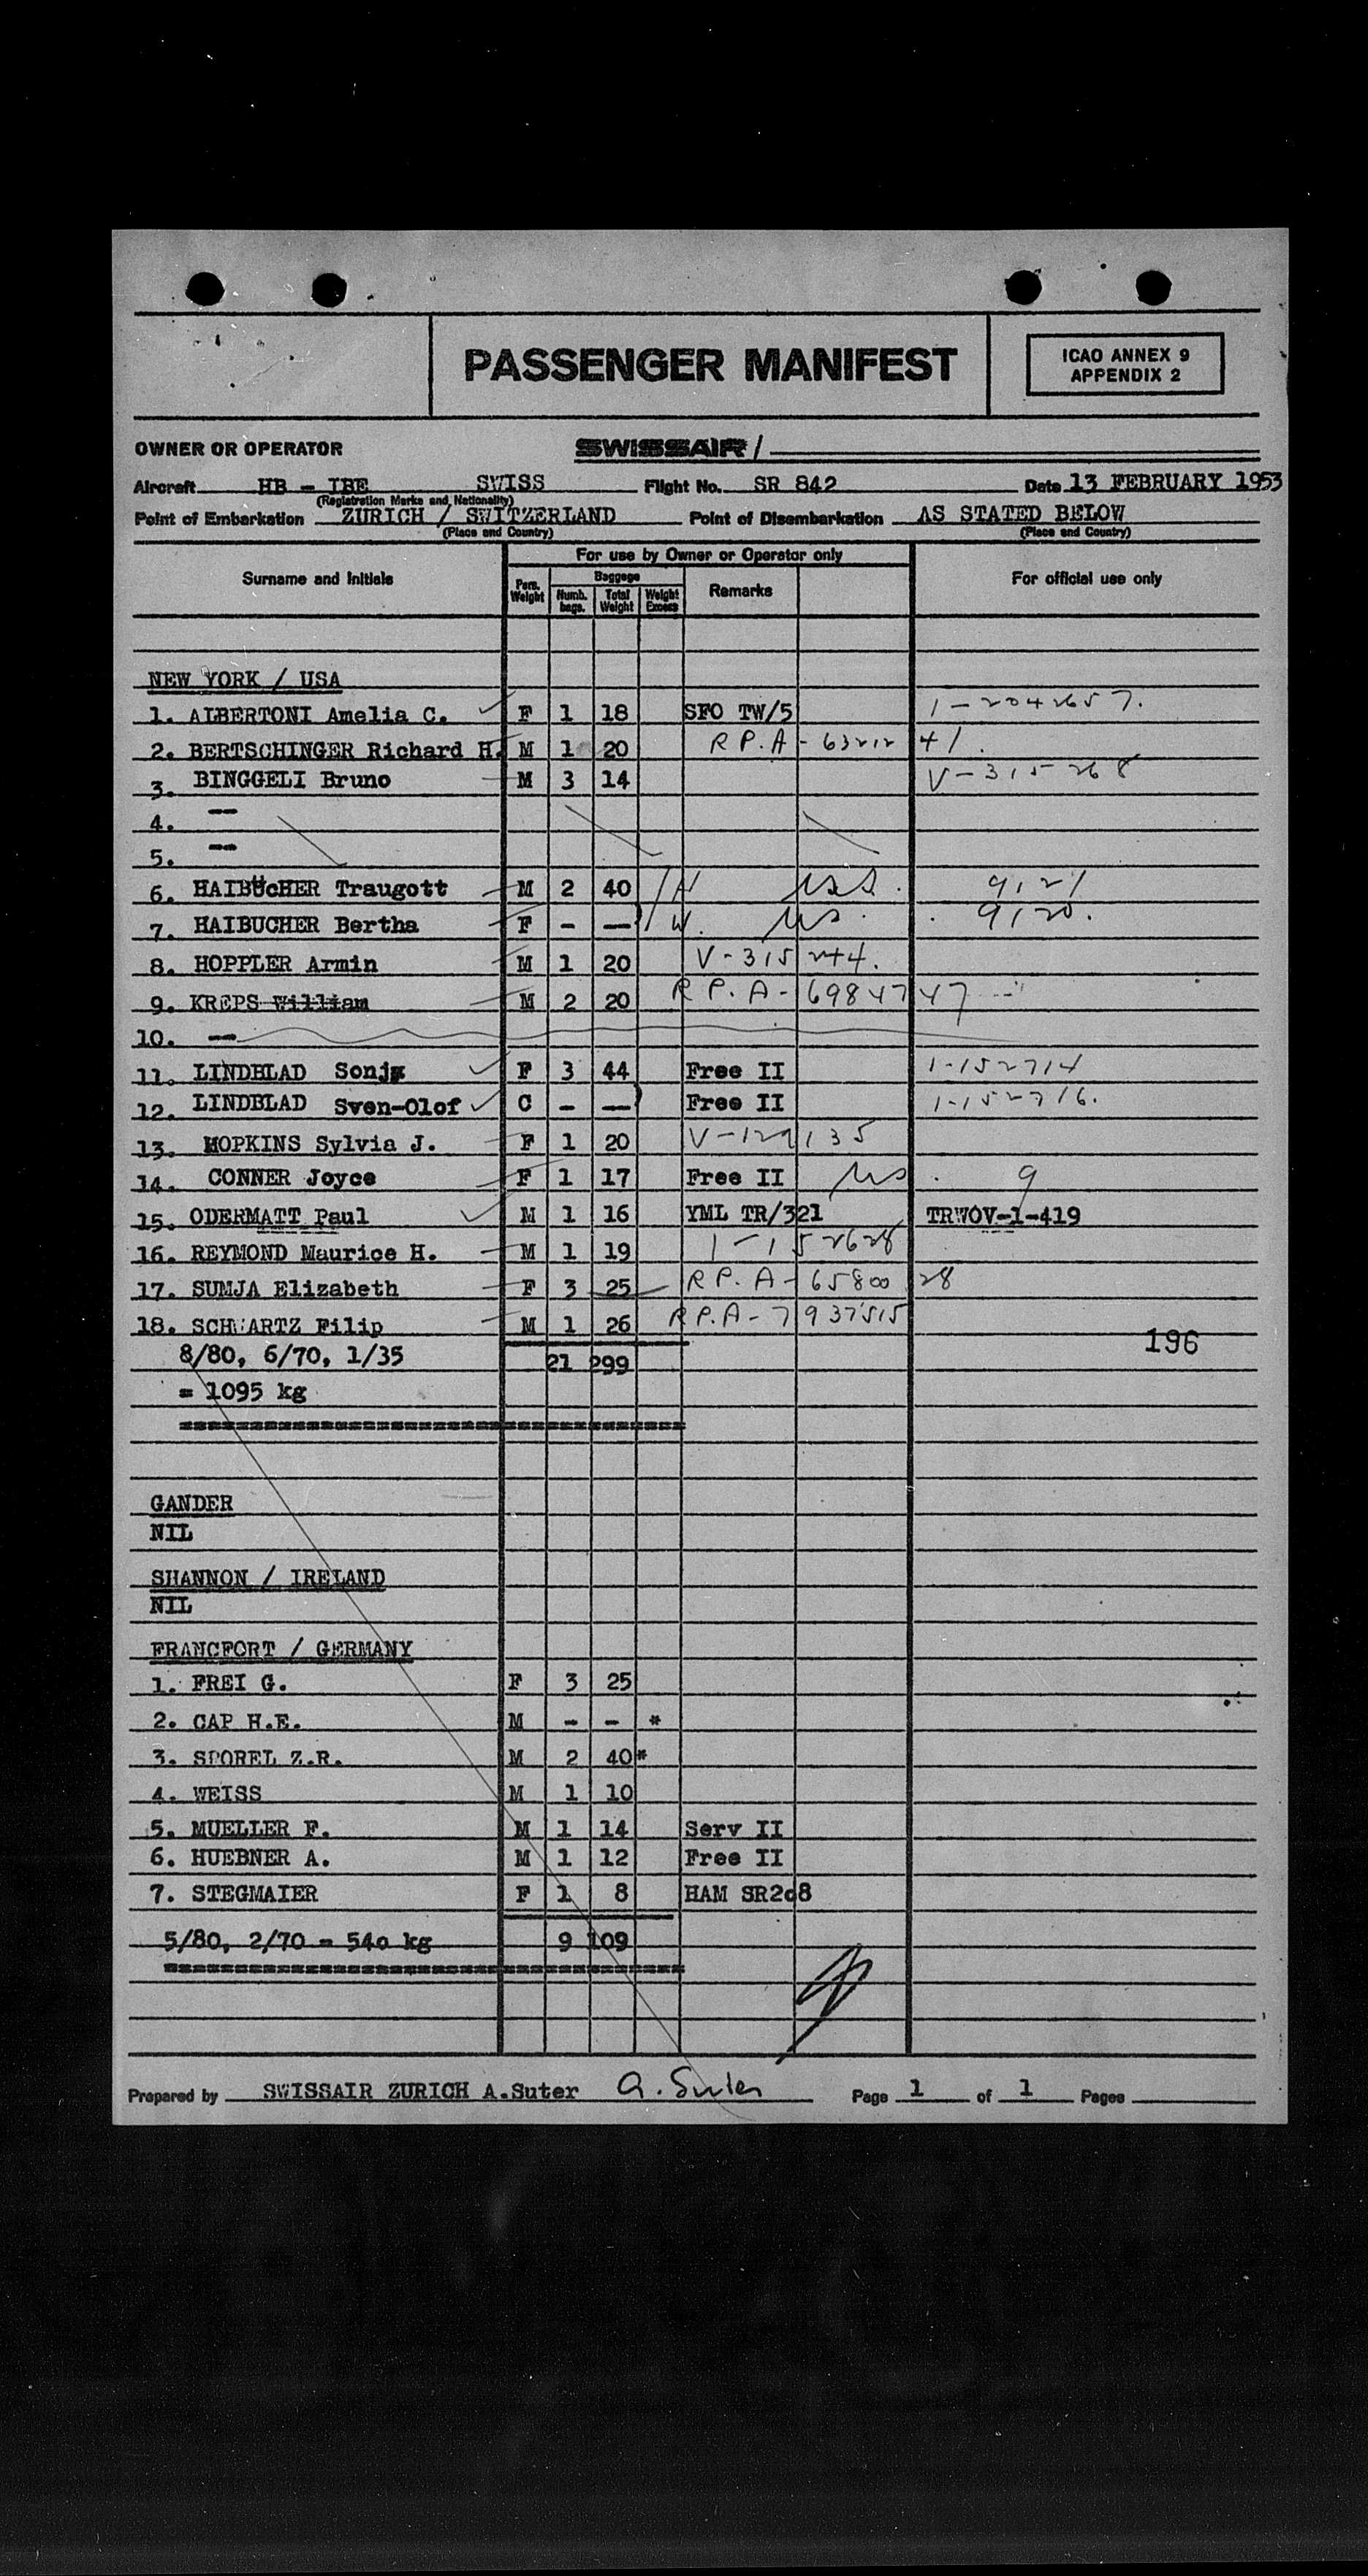 PASSENGER MANIFEST
ICAO ANNEX 9
APPENDIX 2
OWNER OR OPERATOR SWISSAIR /
Aircraft HB - IBE SWISS Flight No. SR 842 Date 13 FEBRUARY 1953
(Registration Marks and Nationality)
Point of Embarkation ZURICH / SWITZERLAND Point of Disembarkation AS STATED BELOW
(Place and Country) (Place and Country)
For use by Owner or Operator only
Surname and Initials Pers. Weight Baggage Numb. bags. Total Weight Weight Excess Remarks For official use only
NEW YORK / USA
1. ALBERTONI Amelia C. F 1 18 SFO TW/5 1-2042657.
2. BERTSCHINGER Richard H. M 1 20 R P.A - 6321241.
3. BINGGELI Bruno M 3 14 V-315268
4. —
5. —
6. HAIBUCHER Traugott M 2 40 H 9121
7. HAIBUCHER Bertha F - — ) W. 9120.
8. HOPPLER Armin M 1 20 V-315244.
9. KREPS William M 2 20 R P. A - 6984747
10. —
11. LINDBLAD Sonja F 3 44 Free II 1-152714
12. LINDBLAD Sven-Olof C - — ) Free II 1-152716.
13. HOPKINS Sylvia J. F 1 20 V-129135
14. CONNER Joyce F 1 17 Free II 9
15. ODERMATT Paul M 1 16 YML TR/321 TRWOV-1-419
16. REYMOND Maurice H. M 1 19 1-152628
17. SUMJA Elizabeth F 3 25 R P. A - 6580028
18. SCHWARTZ Filip M 1 26 R P.A - 7937515
196
8/80, 6/70, 1/35 21 299
= 1095 kg
GANDER
NIL
SHANNON / IRELAND
NIL
FRANCFORT / GERMANY
1. FREI G. F 3 25
2. CAP H.E. M - - *
3. SPOREL Z.R. M 2 40*
4. WEISS M 1 10
5. MUELLER F. M 1 14 Serv II
6. HUEBNER A. M 1 12 Free II
7. STEGMAIER F 1 8 HAM SR2o8
5/80, 2/70 = 54o kg 9 109
Prepared by SWISSAIR ZURICH A.Suter A. Suter Page 1 of 1 Pages